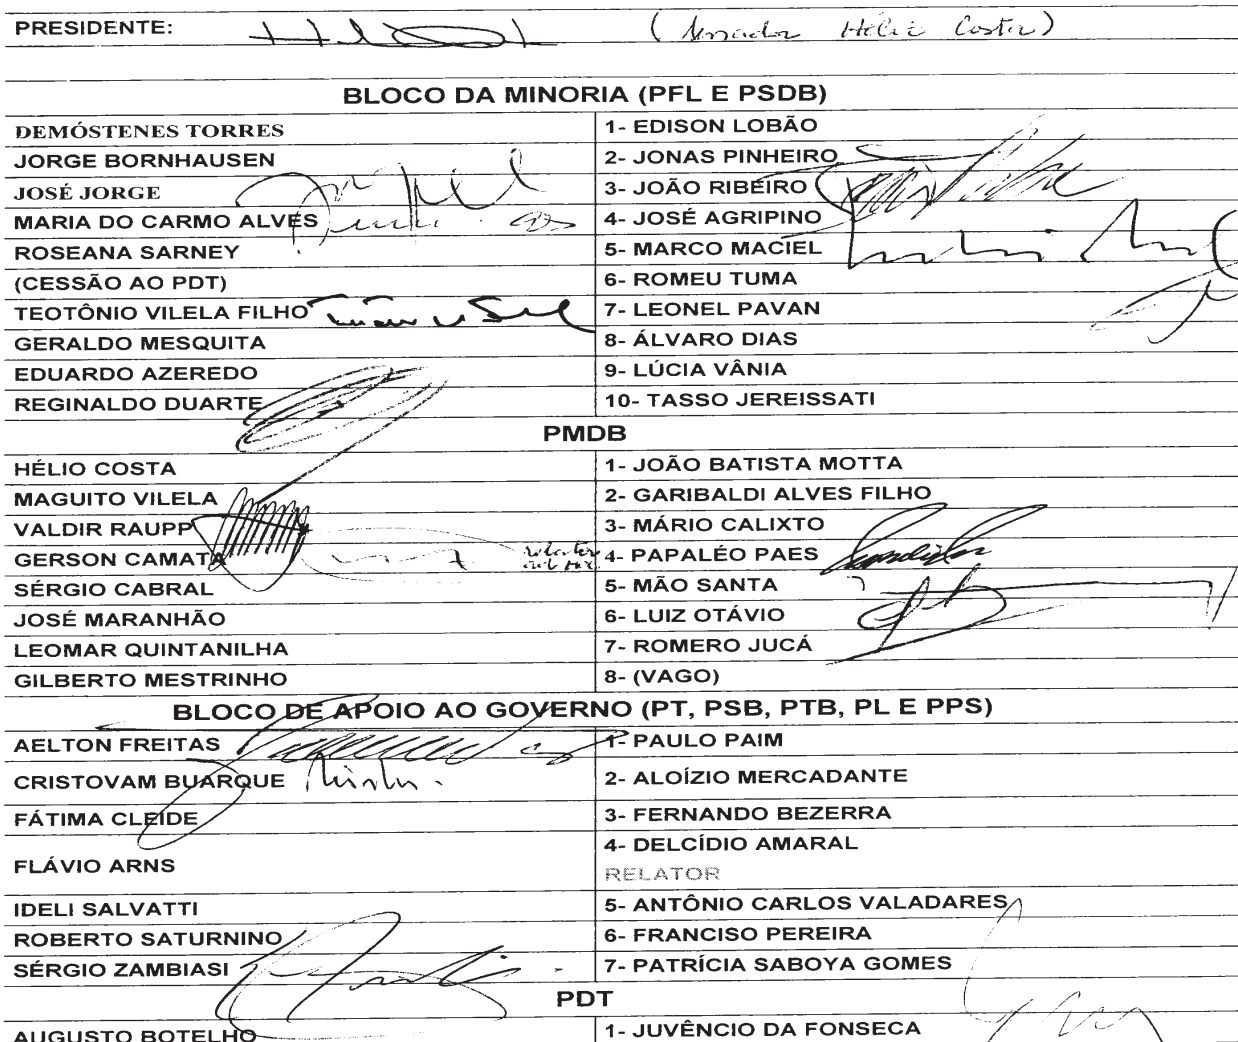 PRESIDENTE: (Senador Hélio Costa)
BLOCO DA MINORIA (PFL E PSDB)
DEMÓSTENES TORRES 1- EDISON LOBÃO
JORGE BORNHAUSEN 2- JONAS PINHEIRO
JOSÉ JORGE 3- JOÃO RIBEIRO
MARIA DO CARMO ALVES 4- JOSÉ AGRIPINO
ROSEANA SARNEY 5- MARCO MACIEL
(CESSÃO AO PDT) 6- ROMEU TUMA
TEOTÔNIO VILELA FILHO 7- LEONEL PAVAN
GERALDO MESQUITA 8- ÁLVARO DIAS
EDUARDO AZEREDO 9- LÚCIA VÂNIA
REGINALDO DUARTE 10- TASSO JEREISSATI
PMDB
HÉLIO COSTA 1- JOÃO BATISTA MOTTA
MAGUITO VILELA 2- GARIBALDI ALVES FILHO
VALDIR RAUPP 3- MÁRIO CALIXTO
GERSON CAMATA relator 4- PAPALÉO PAES
SÉRGIO CABRAL 5- MÃO SANTA
JOSÉ MARANHÃO 6- LUIZ OTÁVIO
LEOMAR QUINTANILHA 7- ROMERO JUCÁ
GILBERTO MESTRINHO 8- (VAGO)
BLOCO DE APOIO AO GOVERNO (PT, PSB, PTB, PL E PPS)
AELTON FREITAS 1- PAULO PAIM
CRISTOVAM BUARQUE 2- ALOÍZIO MERCADANTE
FÁTIMA CLEIDE 3- FERNANDO BEZERRA
FLÁVIO ARNS 4- DELCÍDIO AMARAL
RELATOR
IDELI SALVATTI 5- ANTÔNIO CARLOS VALADARES
ROBERTO SATURNINO 6- FRANCISO PEREIRA
SÉRGIO ZAMBIASI 7- PATRÍCIA SABOYA GOMES
PDT
AUGUSTO BOTELHO 1- JUVÊNCIO DA FONSECA